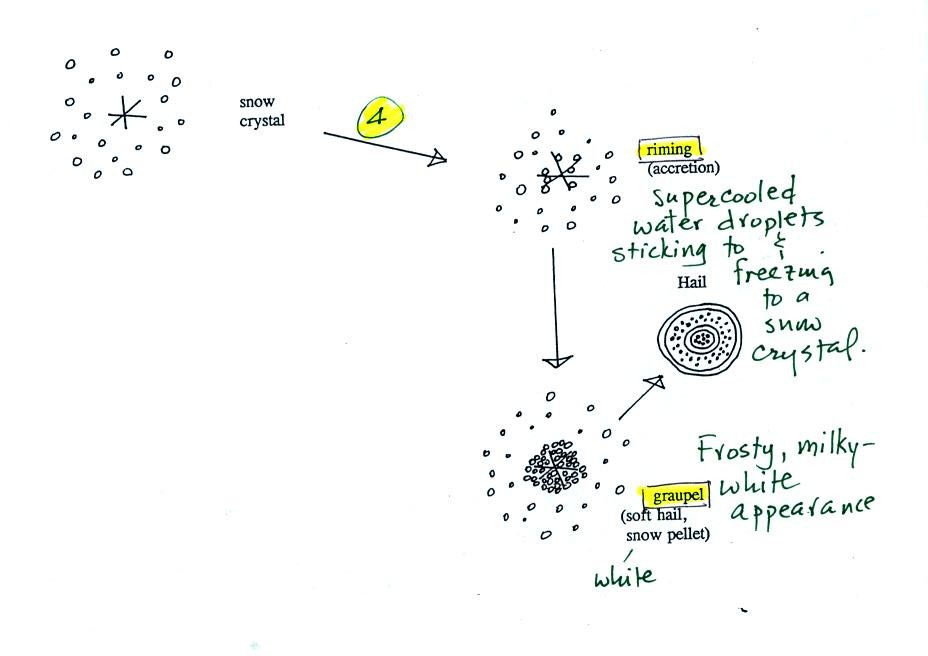 snow
crystal
4
riming
(accretion)
supercooled
water droplets
sticking to &
freezing
to a
snow
crystal.
Hail
graupel
(soft hail,
snow pellet)
white
Frosty, milky-
white
appearance